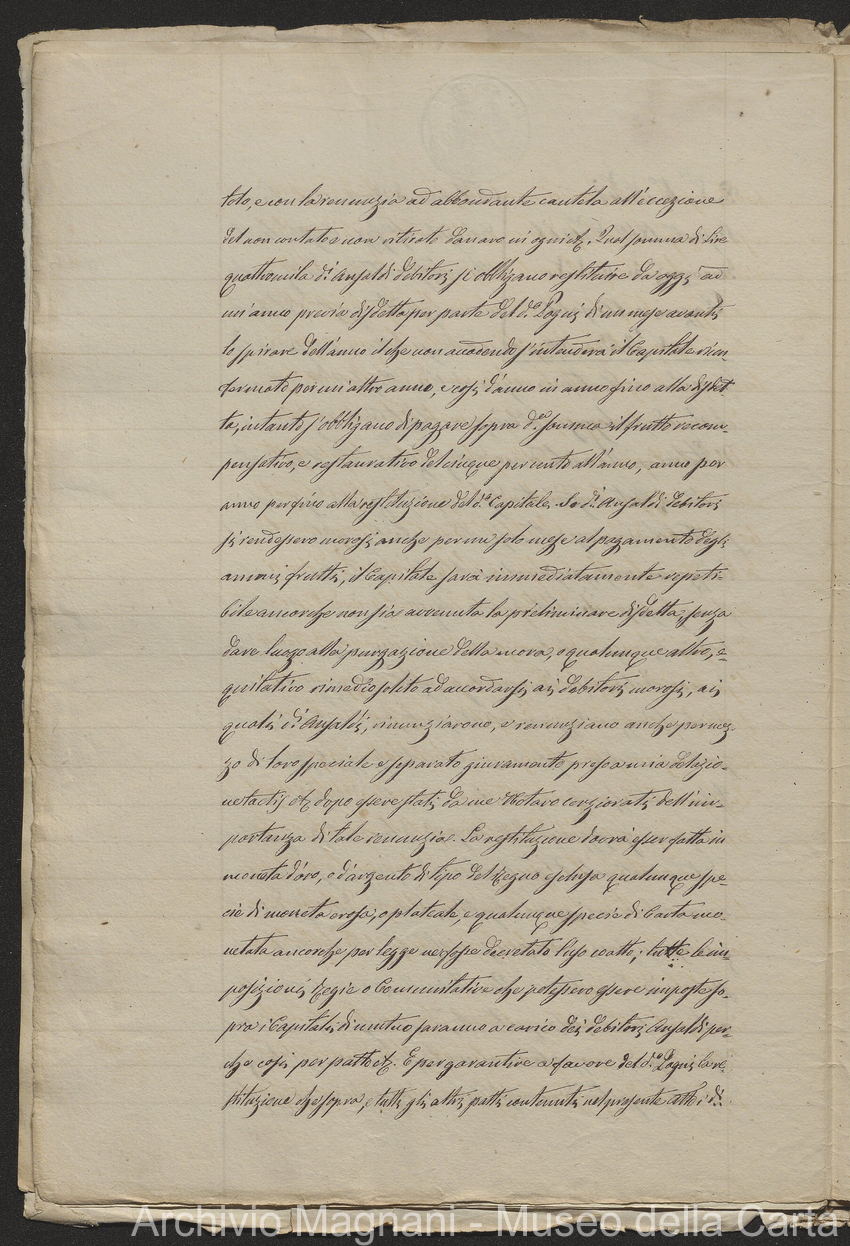 tolo, e con la renunzia ad abbondante cautela all'eccezione
del non contato e non ritirato danaro in ogni &. Qual somma di Lire
quattromila di Ansaldi debitori si obbligano restituire da oggi ad
un'anno previa disdetta per parte del d.o Pagni di un mese avanti
lo spirare dell'anno il che non accadendo s'intenderà il Capitale rin
fermato per un altro anno, e così d'anno in anno fino alla disdet
ta, intanto s'obbligano di pagare sopra d.a somma il frutto recom-
pensativo, e restaurativo del cinque per cento all'anno, anno per
anno per fino alla restituzione del d.o Capitale. Se d.i Ansaldi debitori
si rendessero morosi anche per un solo mese al pagamento degli
annui frutti, il Capitale sarà immediatamente repeti-
bile ancorche non sia avvenuta la preliminare disdetta, senza
dare luogo alla purgazione della mora, o qualunque altro, e-
quitativo rimedio solito ad accordarsi ai debitori morosi, ai
quali d.i Ansaldi, rinunziarono, e renunziano anche per mez-
zo di loro speciale e separato giuramento preso a mia delazio-
ne tactis & dopo essere stati da me Notaro cerziorati dell'im-
portanza di tale renunzia. La restituzione dovrà esser fatta in
moneta d'oro, o d'argento di tipo del Regno esclusa qualunque spe-
cie di moneta erosa, o plateale, e qualunque specie di Carta mo-
netata ancorche per legge ne fosse decretato l'uso coatto; tutte le im-
posizioni Regie o Comunitative che potessero essere imposte so-
pra i Capitali di mutuo saranno a carico dei debitori Ansaldi per-
che così per patto &. E per garantire a favore del d.o Pagni la re-
stituzione che sopra, e tutti gli altri patti contenuti nel presente atto i d.i
Archivio Magnani - Museo della Carta